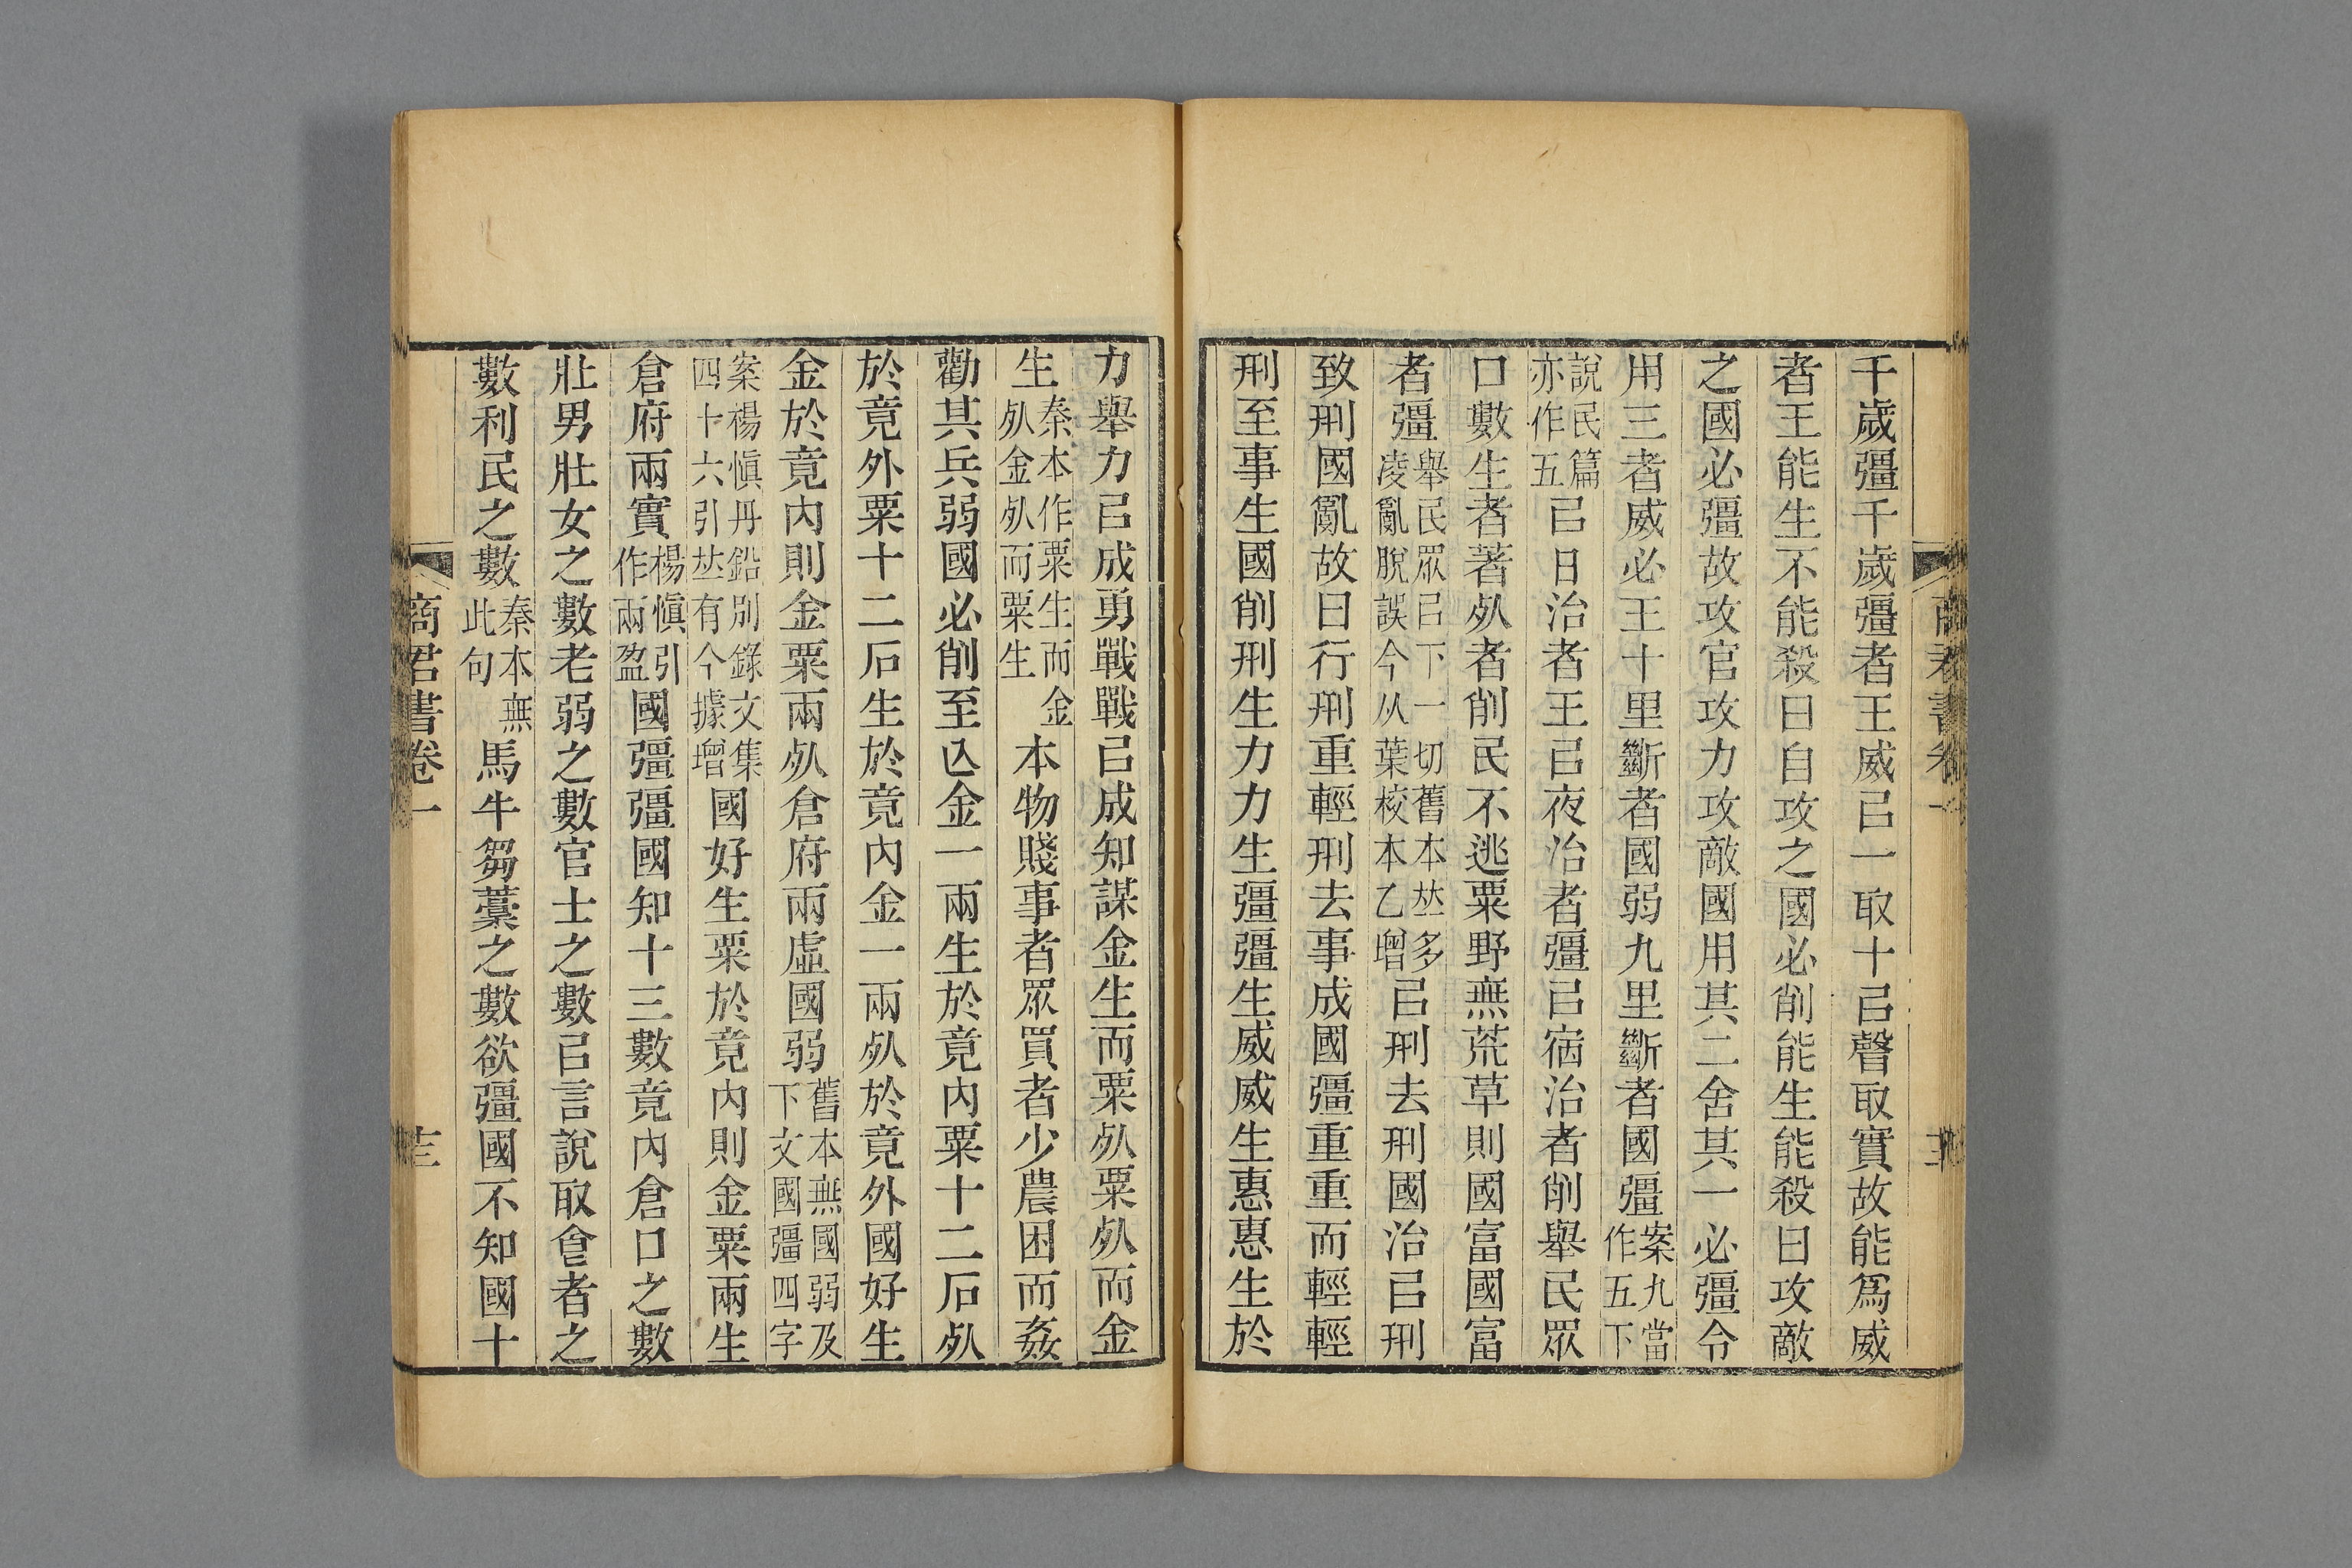 千歲彊千歲彊者王威㠯一取十㠯聲取實故能爲威
者王能生不能殺曰自攻之國必削能生能殺曰攻敵
之國必彊故攻官攻力攻敵國用其二舍其一必彊令
用三者威必王十里斷者國弱九里斷者國彊案九當作五下
說民篇亦作五㠯日治者王㠯夜治者彊㠯宿治者削舉民眾
口數生者著㱙者削民不逃粟野無荒草則國富國富
者彊舉民眾㠯下一切舊本竝多凌亂脫誤今从葉校本乙增㠯刑去刑國治㠯刑
致刑國亂故曰行刑重輕刑去事成國彊重重而輕輕
刑至事生國削刑生力力生彊彊生威威生惠惠生於
力舉力㠯成勇戰戰㠯成知謀金生而粟㱙粟㱙而金
生秦本作粟生而金㱙金㱙而粟生本物賤事者眾買者少農困而姦
勸其兵弱國必削至亾金一兩生於竟內粟十二石㱙
於竟外粟十二石生於竟內金一兩㱙於竟外國好生
金於竟內則金粟兩㱙倉府兩虛國弱舊本無國弱及下文國彊四字
案楊愼丹鉛別錄文集四十六引竝有今據增國好生粟於竟內則金粟兩生
倉府兩實楊愼引作兩盈國彊彊國知十三數竟內倉口之數
壯男壯女之數老弱之數官士之數㠯言說取食者之
數利民之數秦本無此句馬牛芻藁之數欲彊國不知國十
商君書卷一